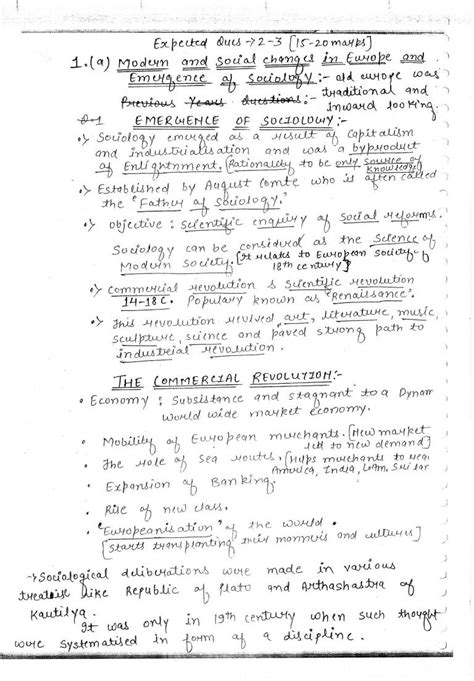 Expected Ques → 2-3 [15-20 marks]
1. (a) Modern and Social changes in Europe and
Emergence of Sociology :- old europe was
traditional and
Previous Years Questions:-
inward looking.
Q-1 EMERGENCE OF SOCIOLOGY :-
•) Sociology emerged as a result of Capitalism
and industrialisation and was a byproduct
of Enlightnment. [Rationality to be only source of
knowledge]
•) Established by August Comte who is often called
the "Father of Sociology."
•) objective : scientific enquiry of social reforms.
Sociology can be considered as the Science of
Modern Society. [It relates to European Society of
18th century]
•) Commercial revolution & Scientific revolution
14-18 C. Populary known as "Renaissance".
•) This revolution revived art, literature, music,
sculpture, science and paved strong path to
industrial revolution.
THE COMMERCIAL REVOLUTION:-
• Economy : Subsistance and stagnant to a Dynam
world wide market economy.
• Mobility of European merchants. [New market
led to new demand]
• The role of Sea routes. [Helps merchants to reac
America, India, Lam, Sri lan
• Expansion of Banking.
• Rise of new class.
• "Europeanisation" of the world.
[Starts transplanting their manners and cultures]
→ Sociological deliberations were made in various
treatise like Republic of Plato and Arthashastra of
Kautilya.
It was only in 19th century when such thought
were systematised in form of a discipline.